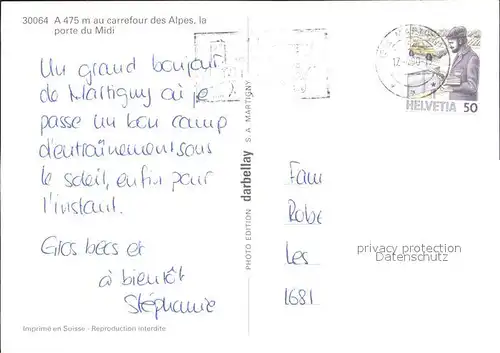 30064 A 475 m au carrefour des Alpes, la
porte du Midi
Un grand bonjour
de Martigny où je
passe un bon camp
d'entraînement sous
le soleil, enfin pour
l'instant.
Gros becs et
à bientôt
Stéphanie
Imprimé en Suisse - Reproduction interdite
PHOTO EDITION darbellay S.A. MARTIGNY
HELVETIA 50
Fam
Robe
Les
1681
privacy protection
Datenschutz